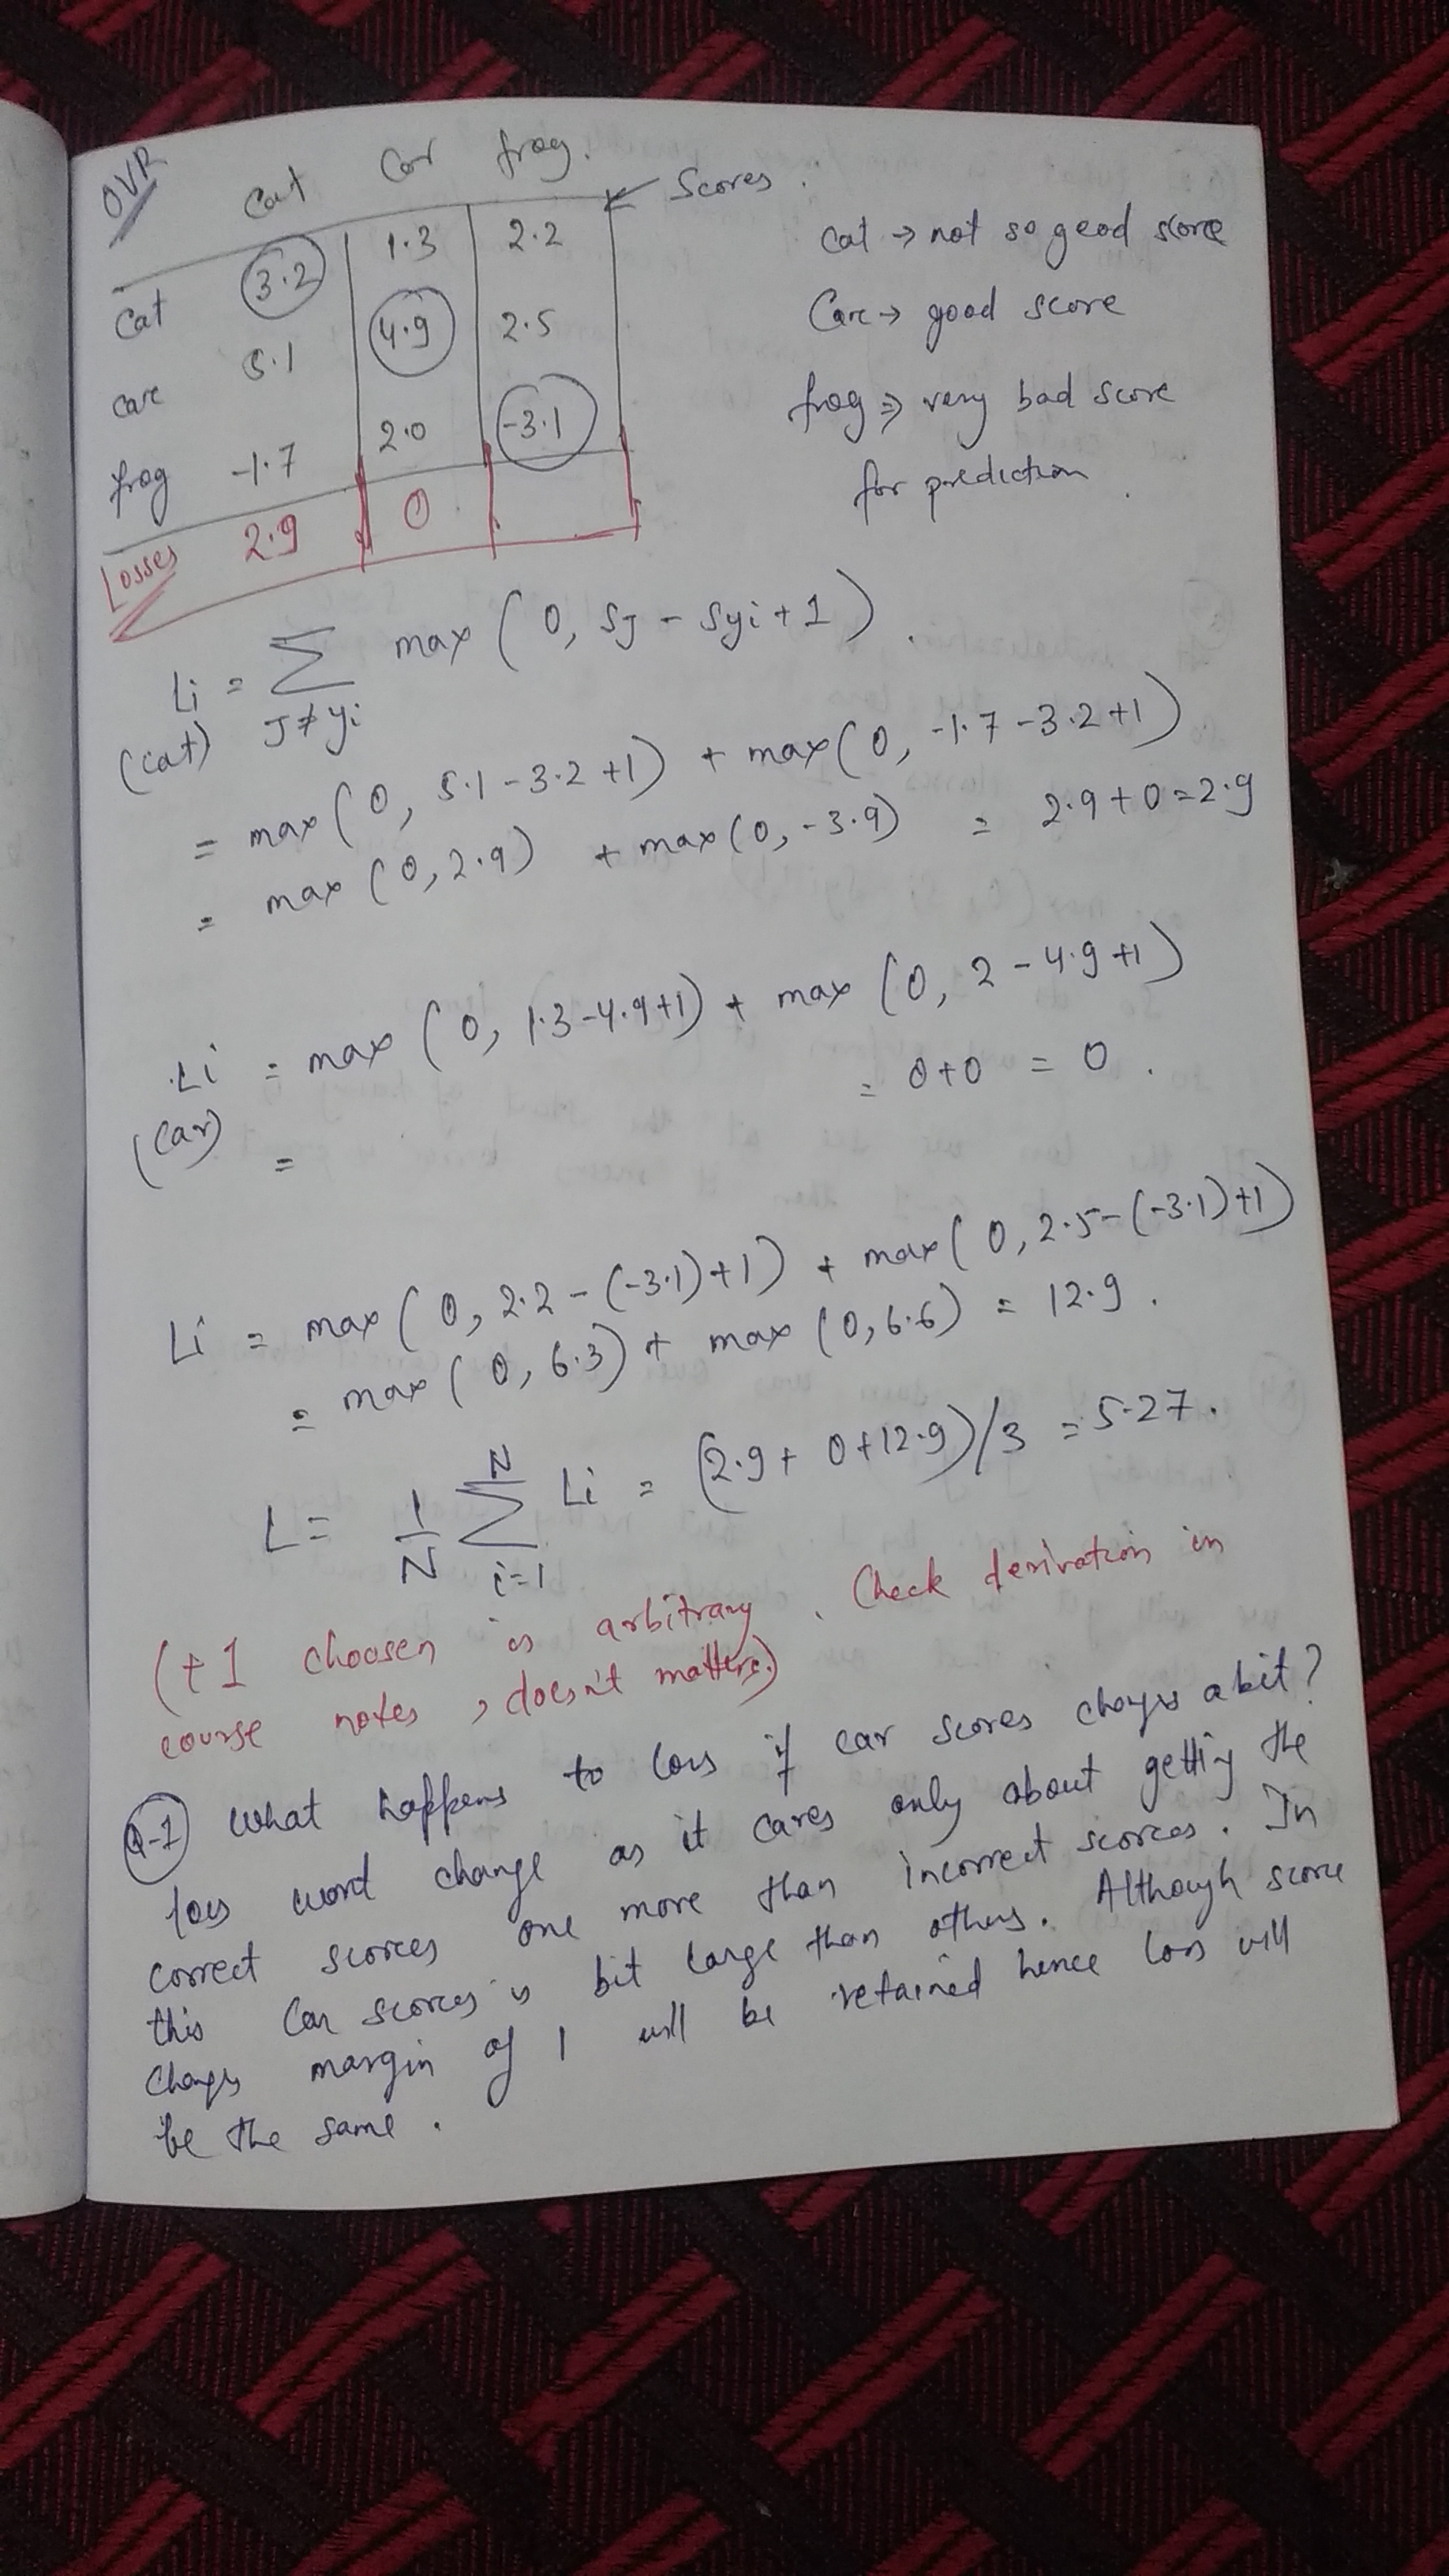 OVR
Cat Car frog.
← Scores.
Cat 3.2 1.3 2.2
Care 5.1 4.9 2.5
frog -1.7 2.0 -3.1
Losses 2.9 0
Cat → not so good score
Care → good score
frog ⇒ very bad score
for prediction.
Li = Σ max (0, sJ - syi + 1).
(cat) J≠yi
= max (0, 5.1 - 3.2 + 1) + max (0, -1.7 - 3.2 + 1)
= max (0, 2.9) + max (0, -3.9) = 2.9 + 0 = 2.9
Li = max (0, 1.3 - 4.9 + 1) + max (0, 2 - 4.9 + 1)
(Car) = = 0 + 0 = 0.
Li = max (0, 2.2 - (-3.1) + 1) + max (0, 2.5 - (-3.1) + 1)
= max (0, 6.3) + max (0, 6.6) = 12.9.
L = 1/N Σ N i=1 Li = (2.9 + 0 + 12.9)/3 = 5.27.
(+1 choosen is arbitrary. Check derivation in
course notes, doesn't matters.)
Q-1 What happens to loss if car scores changes a bit?
loss wont change as it cares only about getting the
correct scores one more than incorrect scores. In
this Car scores is bit large than others. Although score
changes margin of 1 will be retained hence loss will
be the same.